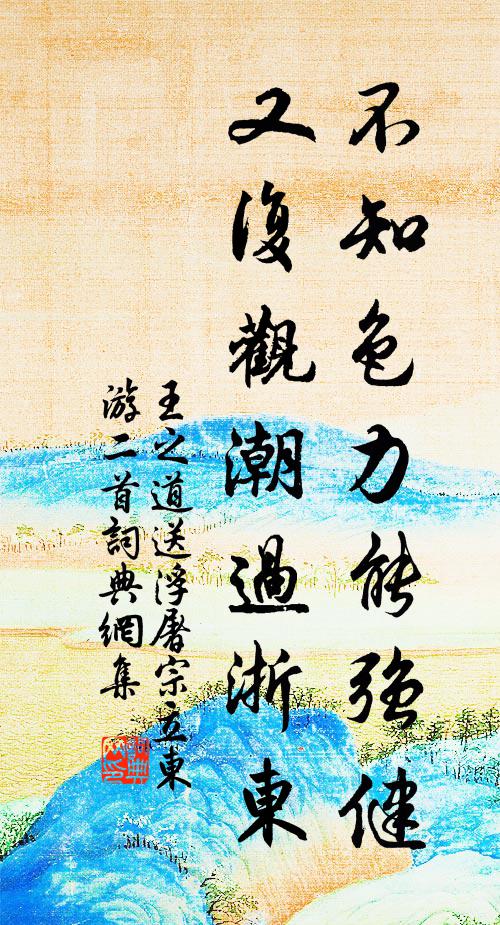 不知色力能強健
又復觀潮過浙東
王之道送浮屠宗立東
游二首詞典網集